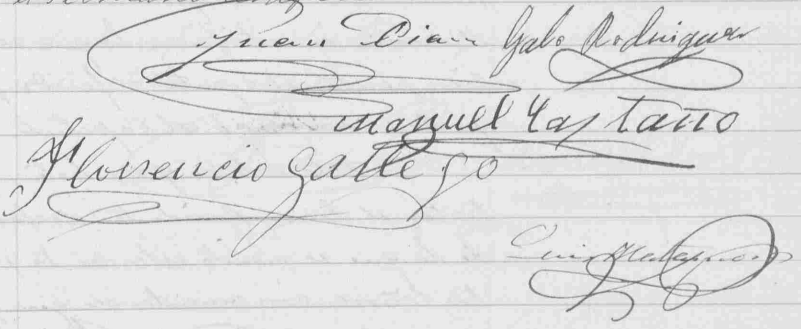 Juan Dian Galo Rodriguez
Manuel Castaño
Florencio Gallego
Luis